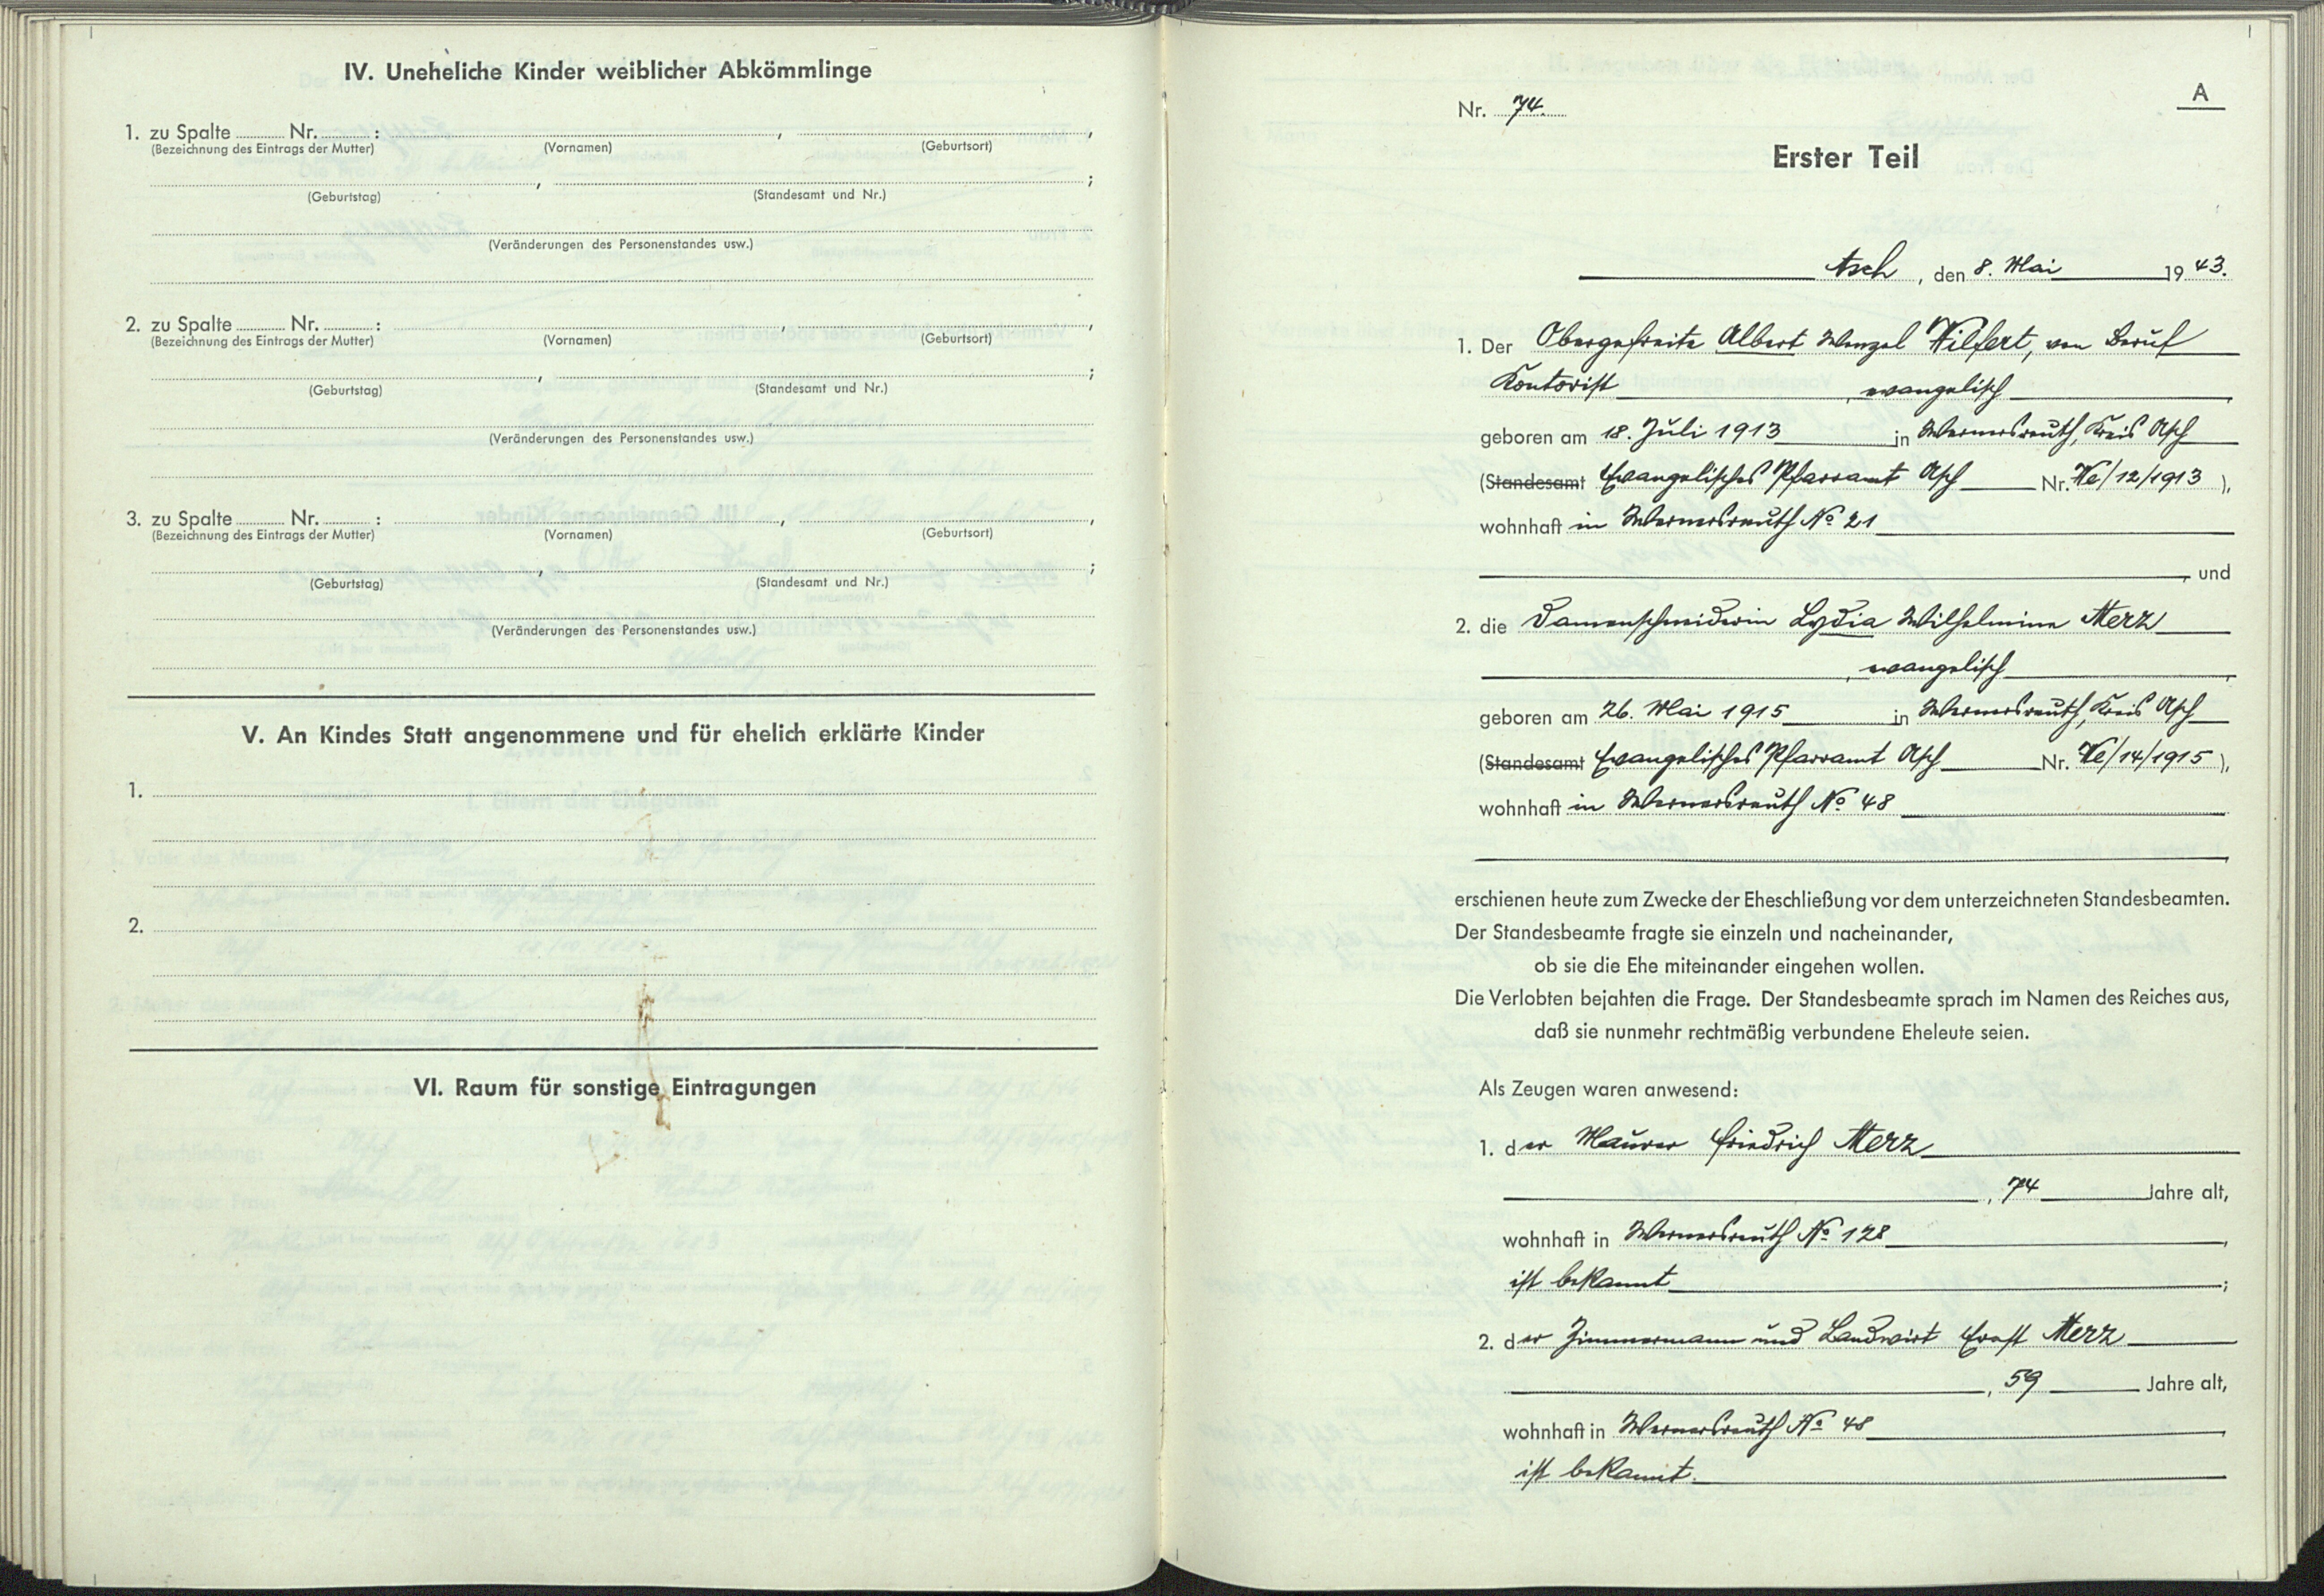 IV. Uneheliche Kinder weiblicher Abkömmlinge
1. zu Spalte ........ Nr. ........ : ........ , ........ ,
(Bezeichnung des Eintrags der Mutter) (Vornamen) (Geburtsort)
........ , ........ ;
(Geburtstag) (Standesamt und Nr.)
(Veränderungen des Personenstandes usw.)
2. zu Spalte ........ Nr. ........ : ........ , ........ ,
(Bezeichnung des Eintrags der Mutter) (Vornamen) (Geburtsort)
........ , ........ ;
(Geburtstag) (Standesamt und Nr.)
(Veränderungen des Personenstandes usw.)
3. zu Spalte ........ Nr. ........ : ........ , ........ ,
(Bezeichnung des Eintrags der Mutter) (Vornamen) (Geburtsort)
........ , ........ ;
(Geburtstag) (Standesamt und Nr.)
(Veränderungen des Personenstandes usw.)
V. An Kindes Statt angenommene und für ehelich erklärte Kinder
1.
2.
VI. Raum für sonstige Eintragungen
A
Nr. 74.
Erster Teil
Asch, den 8. Mai 1943.
1. Der Obergefreite Albert Wenzel Wilfert, von Beruf
Kontorist, evangelisch,
geboren am 18. Juli 1913 in Wernersreuth, Kreis Asch
(Standesamt Evangelisches Pfarramt Asch Nr. We/12/1913),
wohnhaft in Wernersreuth No 21
, und
2. die Damenschneiderin Lydia Wilhelmine Merz
, evangelisch,
geboren am 26. Mai 1915 in Wernersreuth, Kreis Asch
(Standesamt Evangelisches Pfarramt Asch Nr. We/14/1915),
wohnhaft in Wernersreuth No 48
,
erschienen heute zum Zwecke der Eheschließung vor dem unterzeichneten Standesbeamten.
Der Standesbeamte fragte sie einzeln und nacheinander,
ob sie die Ehe miteinander eingehen wollen.
Die Verlobten bejahten die Frage. Der Standesbeamte sprach im Namen des Reiches aus,
daß sie nunmehr rechtmäßig verbundene Eheleute seien.
Als Zeugen waren anwesend:
1. der Maurer Friedrich Merz
, 74 Jahre alt,
wohnhaft in Wernersreuth No 128,
ist bekannt;
2. der Zimmermann und Landwirt Ernst Merz
, 59 Jahre alt,
wohnhaft in Wernersreuth No 48,
ist bekannt.